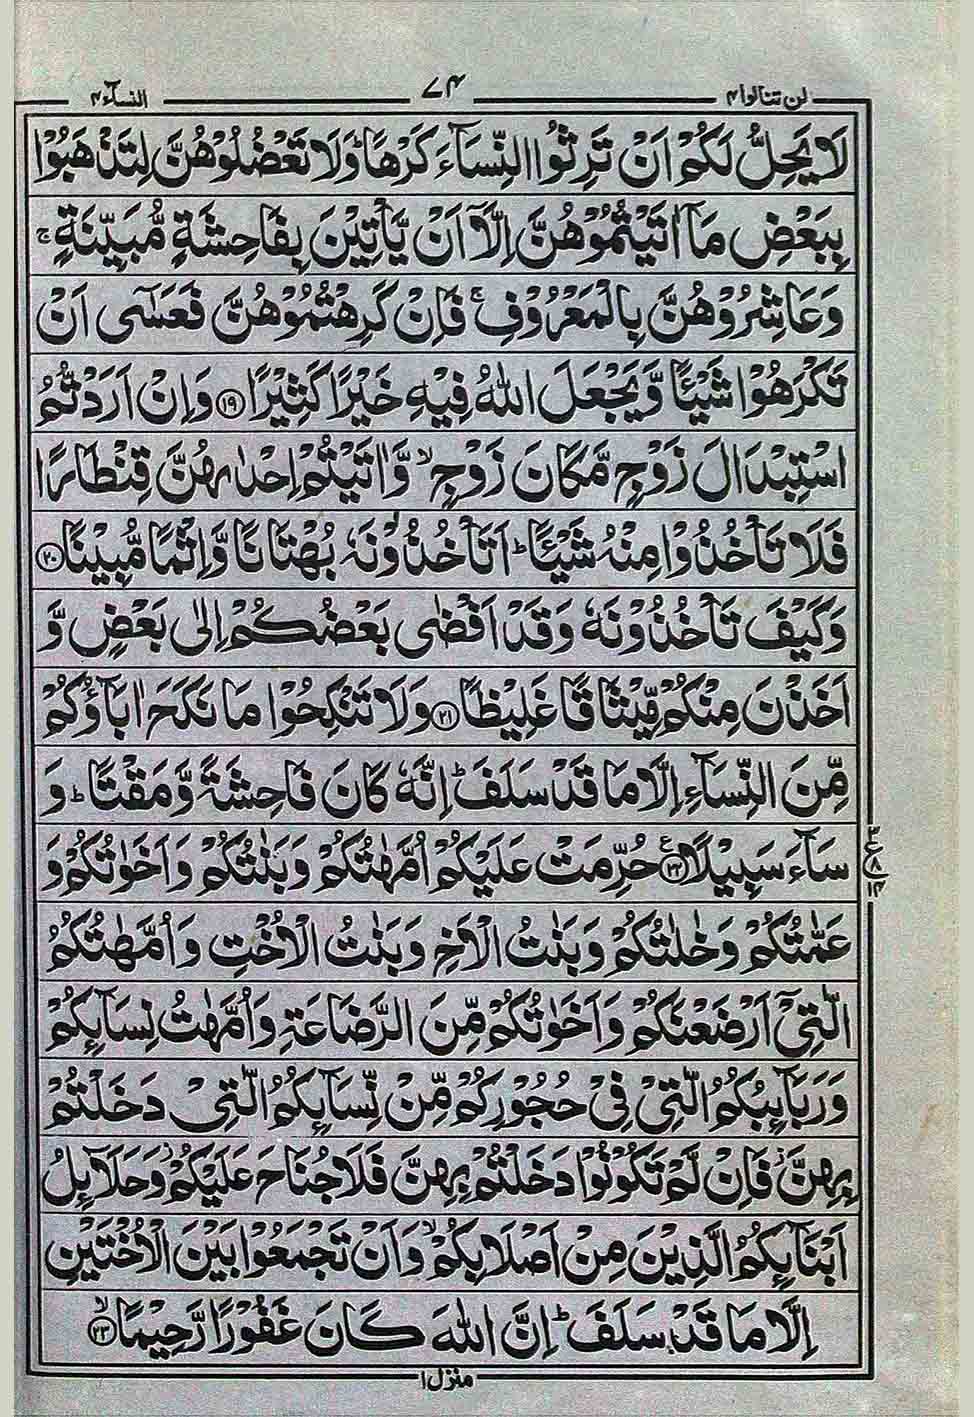 لن تنالوا ۴ ۷۴ النسآء ۴
لَا يَحِلُّ لَكُمْ اَنْ تَرِثُوا النِّسَآءَ كَرْهًا ؕ وَلَا تَعْضُلُوْهُنَّ لِتَذْهَبُوْا
بِبَعْضِ مَاۤ اٰتَيْتُمُوْهُنَّ اِلَّاۤ اَنْ يَّاْتِيْنَ بِفَاحِشَةٍ مُّبَيِّنَةٍ ۚ
وَعَاشِرُوْهُنَّ بِالْمَعْرُوْفِ ۚ فَاِنْ كَرِهْتُمُوْهُنَّ فَعَسٰۤى اَنْ
تَكْرَهُوْا شَيْئًا وَّيَجْعَلَ اللّٰهُ فِيْهِ خَيْرًا كَثِيْرًا ﴿۱۹﴾ وَاِنْ اَرَدْتُّمُ
اسْتِبْدَالَ زَوْجٍ مَّكَانَ زَوْجٍ ۙ وَّاٰتَيْتُمْ اِحْدٰىهُنَّ قِنْطَارًا
فَلَا تَاْخُذُوْا مِنْهُ شَيْئًا ؕ اَتَاْخُذُوْنَهٗ بُهْتَانًا وَّاِثْمًا مُّبِيْنًا ﴿۲۰﴾
وَكَيْفَ تَاْخُذُوْنَهٗ وَقَدْ اَفْضٰى بَعْضُكُمْ اِلٰى بَعْضٍ وَّ
اَخَذْنَ مِنْكُمْ مِّيْثَاقًا غَلِيْظًا ﴿۲۱﴾ وَلَا تَنْكِحُوْا مَا نَكَحَ اٰبَآؤُكُمْ
مِّنَ النِّسَآءِ اِلَّا مَا قَدْ سَلَفَ ؕ اِنَّهٗ كَانَ فَاحِشَةً وَّمَقْتًا ؕ وَ
سَآءَ سَبِيْلًا ﴿۲۲﴾ حُرِّمَتْ عَلَيْكُمْ اُمَّهٰتُكُمْ وَبَنٰتُكُمْ وَاَخَوٰتُكُمْ وَ
عَمّٰتُكُمْ وَخٰلٰتُكُمْ وَبَنٰتُ الْاَخِ وَبَنٰتُ الْاُخْتِ وَاُمَّهٰتُكُمُ
الّٰتِيْۤ اَرْضَعْنَكُمْ وَاَخَوٰتُكُمْ مِّنَ الرَّضَاعَةِ وَاُمَّهٰتُ نِسَآئِكُمْ
وَرَبَآئِبُكُمُ الّٰتِيْ فِيْ حُجُوْرِكُمْ مِّنْ نِّسَآئِكُمُ الّٰتِيْ دَخَلْتُمْ
بِهِنَّ ؗ فَاِنْ لَّمْ تَكُوْنُوْا دَخَلْتُمْ بِهِنَّ فَلَا جُنَاحَ عَلَيْكُمْ ؗ وَحَلَآئِلُ
اَبْنَآئِكُمُ الَّذِيْنَ مِنْ اَصْلَابِكُمْ ۙ وَاَنْ تَجْمَعُوْا بَيْنَ الْاُخْتَيْنِ
اِلَّا مَا قَدْ سَلَفَ ؕ اِنَّ اللّٰهَ كَانَ غَفُوْرًا رَّحِيْمًا ۙ﴿۲۳﴾
منزل ۱